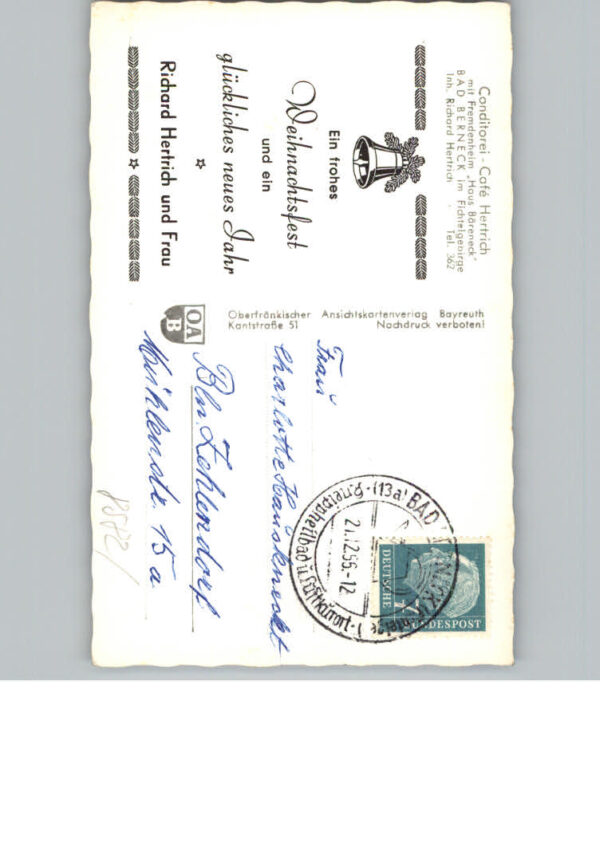 Conditorei - Café Hertrich
mit Fremdenheim „Haus Bäreneck"
BAD BERNECK im Fichtelgebirge
Inh. Richard Hertrich Tel. 362
Ein frohes
Weihnachtsfest
und ein
glückliches neues Jahr
Richard Hertrich und Frau
Oberfränkischer Ansichtskartenverlag Bayreuth
Kantstraße 51 Nachdruck verboten!
OA
B
Frau
Charlotte Hausknecht
Bln. Zehlendorf
Mühlenstr. 15 a
(13a) BAD
21.12.56.-12
Kneippheilbad u Luftkurort
DEUTSCHE
7
BUNDESPOST